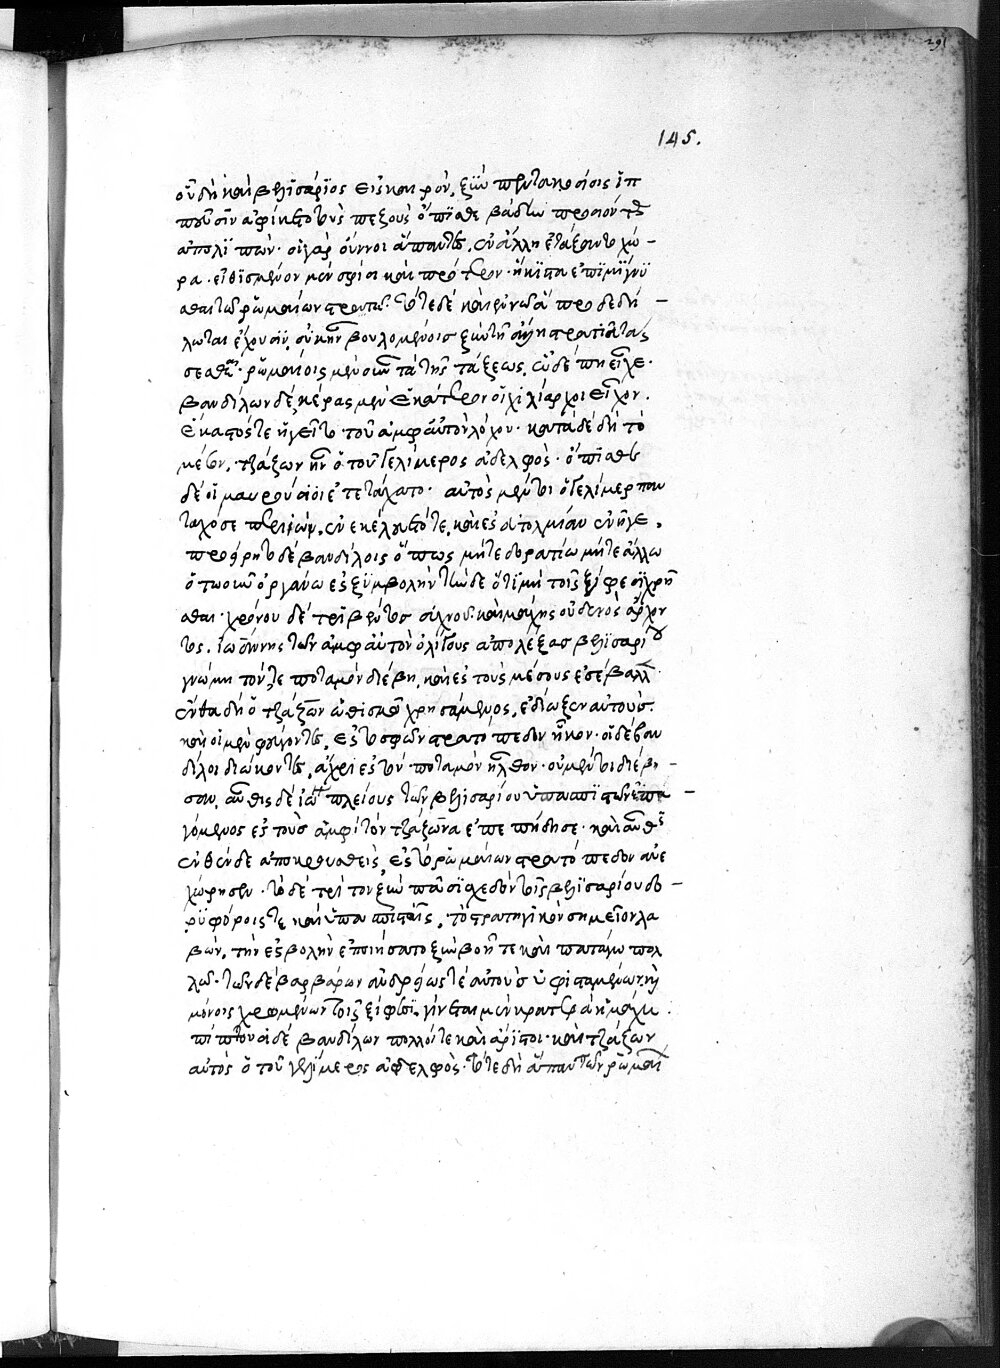 οὗ δὴ καὶ βελισάριος εἰς καιρὸν, ξὺν πεντακοσίοις ἱπ
πεῦσιν ἀφίκετο τοὺς πεζοὺς ὄπισθε βάδην προσιόντας
ἀπολιπών· οἱ γὰρ οὗννοι ἅπαντες, ἐν ἄλλη ἐτάξαντο χώ-
ρα· εἰθισμένον μὲν σφίσι καὶ πρότερον· ἥκιστα ἐπιμίγνυ
σθαι τῶ ῥωμαίων στρατῶ· τότε δὲ καὶ ἐν νῶ ἃ προδεδή-
λωται ἔχουσιν, οὐκ ἦν βουλομένοις ξὺν τῆ ἄλλη στρατιᾶ τάσ
σεσθαι· ῥωμαίοις μὲν οὖν τὰ τῆς τάξεως, ὧδέ πη εἶχε·
βανδίλων δὲ, κέρας μὲν ἑκάτερον οἱ χιλίαρχοι εἶχον.
ἕκαστός τε ἡγεῖτο τοῦ ἀμφ' αὐτὸν λόχου· κατὰ δὲ δὴ τὸ
μέσον, τζάζων ἦν ὁ τοῦ γελίμερος ἀδελφὸς· ὄπισθεν
δὲ οἱ μαυρούσιοι ἐτετάχατο· αὐτὸς μέντοι ὁ γελίμερ παν
ταχόσε περιιὼν, ἐνεκελεύετό τε, καὶ ἐς εὐτολμίαν ἐνῆγε.
προείρητο δὲ βανδίλοις ὅπως μήτε δορατίω μήτε ἄλλω
ὁτωοῦν ὀργάνω ἐς ξυμβολὴν τήνδε ὅτι μὴ τοῖς ξίφεσι χρῆ
σθαι· χρόνου δὲ τριβέντος συχνοῦ· καὶ μάχης οὐδενὸς ἄρχον
τος. ἰωάννης τῶν ἀμφ' αὑτὸν ὀλίγους ἀπολέξας βελισαρίου
γνώμη τόν τε ποταμὸν διέβη, καὶ ἐς τοὺς μέσους ἐσέβαλλεν·
ἔνθα δὴ ὁ τζάζων ὠθισμῶ χρησάμενος, ἐδίωξεν αὐτούς.
καὶ οἱ μὲν φεύγοντες, ἐς τὸ σφῶν στρατόπεδον ἧκον· οἱ δὲ βαν
δίλοι διώκοντες, ἄχρι ἐς τὸν ποταμὸν ἦλθον· οὐ μέντοι διέβη-
σαν, αὖθις δὲ ἰωάννης πλείους τῶν βελισαρίου ὑπασπιστῶν ἐπα-
γόμενος ἐς τοὺς ἀμφὶ τὸν τζάζωνα ἐπεπήδησε· καὶ αὖθις
ἐνθένδε ἀποκρουσθεὶς, ἐς τὸ ῥωμαίων στρατόπεδον ἀνε
χώρησεν· τὸ δὲ τρίτον ξὺν πᾶσι σχεδὸν τοῖς βελισαρίου δο-
ρυφόροις τε καὶ ὑπασπισταῖς, τὸ στρατηγικὸν σημεῖον λα
βὼν, τὴν ἐσβολὴν ἐποιήσατο ξὺν βοῆ τε καὶ πατάγω πολ
λῶ· τῶν δὲ βαρβάρων ἀνδρείως τε αὐτοὺς ὑφισταμένων, καὶ
μόνοις χρωμένων τοῖς ξίφεσι, γίνεται μὲν καρτερὰ ἡ μάχη·
πίπτουσι δὲ βανδίλων πολλοί τε καὶ ἄριστοι· καὶ τζάζων
αὐτὸς ὁ τοῦ γελίμερος ἀδελφὸς· τότε δὴ ἅπαν τῶν ῥωμαί
145.
291